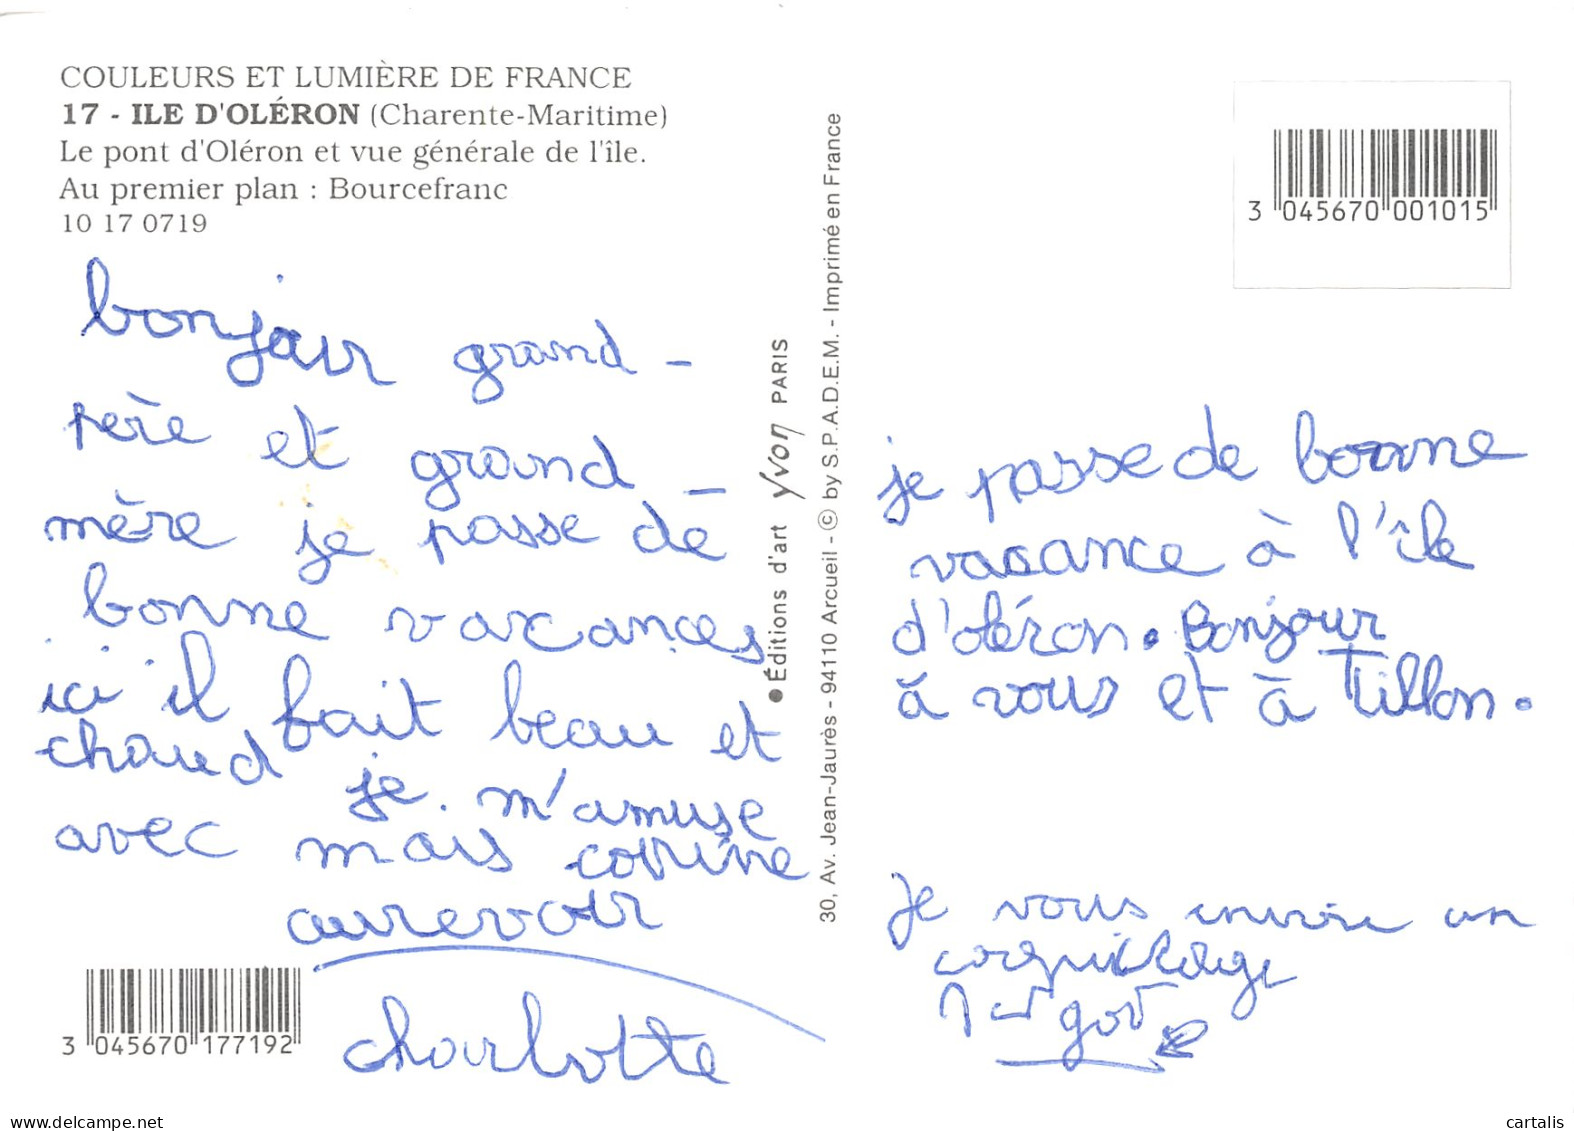 COULEURS ET LUMIÈRE DE FRANCE
17 - ILE D'OLÉRON (Charente-Maritime)
Le pont d'Oléron et vue générale de l'île.
Au premier plan : Bourcefranc
10 17 0719
bonjour grand-
père et grand-
mère je passe de
bonne vacances
ici il fait beau et
chaud je m'amuse
avec mais corine
aurevoir
charlotte
3 045670 177192
●Éditions d'art Yvon PARIS
30, Av. Jean-Jaurès - 94110 Arcueil - © by S.P.A.D.E.M. - Imprimé en France
3 045670 001015
je passe de bonne
vacance à l'île
d'oléron. Bonjour
à vous et à Tillon.
Je vous un
coquillage
delcampe.net
cartalis